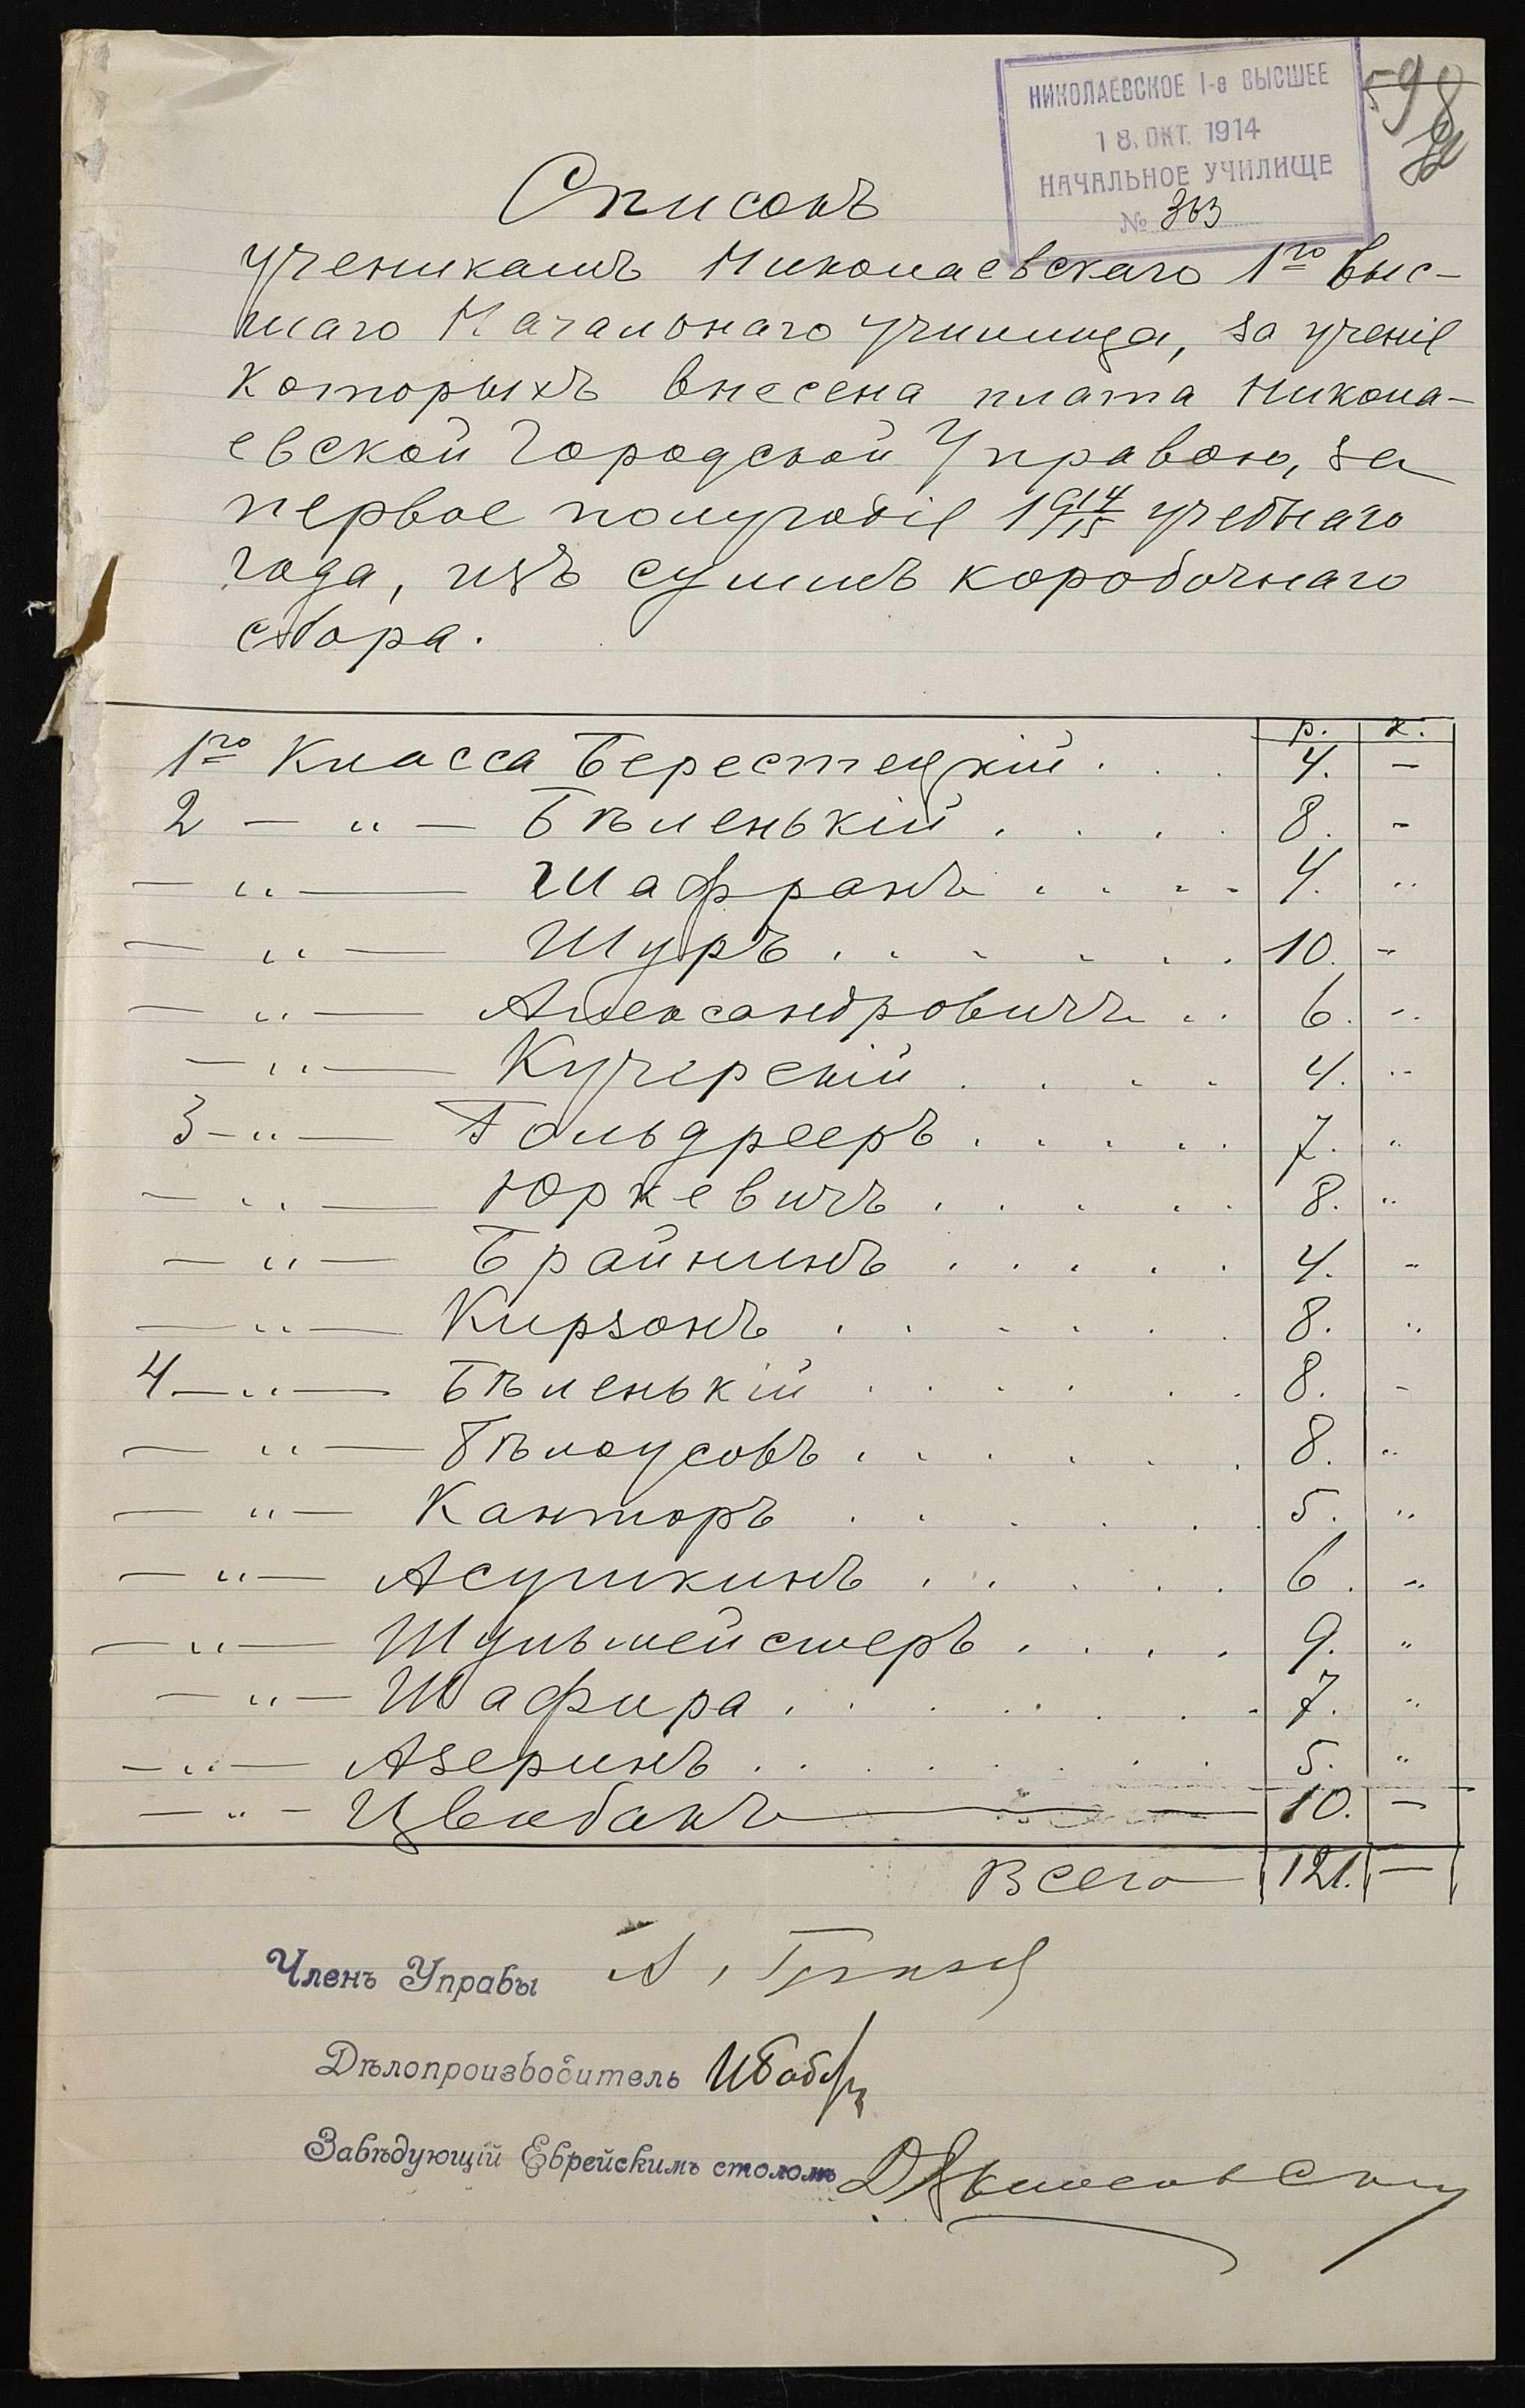 НИКОЛАЕВСКОЕ 1-е ВЫСШЕЕ
18. ОКТ. 1914
НАЧАЛЬНОЕ УЧИЛИЩЕ
№ 363
598
Списокъ
ученикамъ Николаевскаго 1го Выс-
шаго Начальнаго училища, за ученіе
которыхъ внесена плата Никола-
евской Городской Управою, за
первое полугодіе 1914/15 учебнаго
года, изъ суммъ коробочнаго
сбора.
р. к.
1го Класса Берестецкій . . . 4. —
2 — „ — Бѣленькій . . . . 8. —
— „ — Шафранъ . . . . 4. „
— „ — Шуръ . . . . . . 10. „
— „ — Александровичъ . . 6. „
— „ — Кучерскій . . . . 4. „
3 — „ — Гольдрееръ . . . . . 7. „
— „ — Юркевичъ . . . . . 8. „
— „ — Брайнинъ . . . . . 4. „
— „ — Кирзонъ . . . . . . 8. „
4 — „ — Бѣленькій . . . . . . 8. „
— „ — Бѣлоусовъ . . . . . . 8. „
— „ — Канторъ . . . . . . 5. „
— „ — Асушкинъ . . . . . 6. „
— „ — Шульмейстеръ . . . . 9. „
— „ — Шафира . . . . . . . 7. „
— „ — Азеринъ . . . . . . . 5. „
— „ — Цвибакъ — 10. —
Всего 121. —
Членъ Управы А.
Дѣлопроизводитель
Завѣдующій Еврейскимъ столомъ